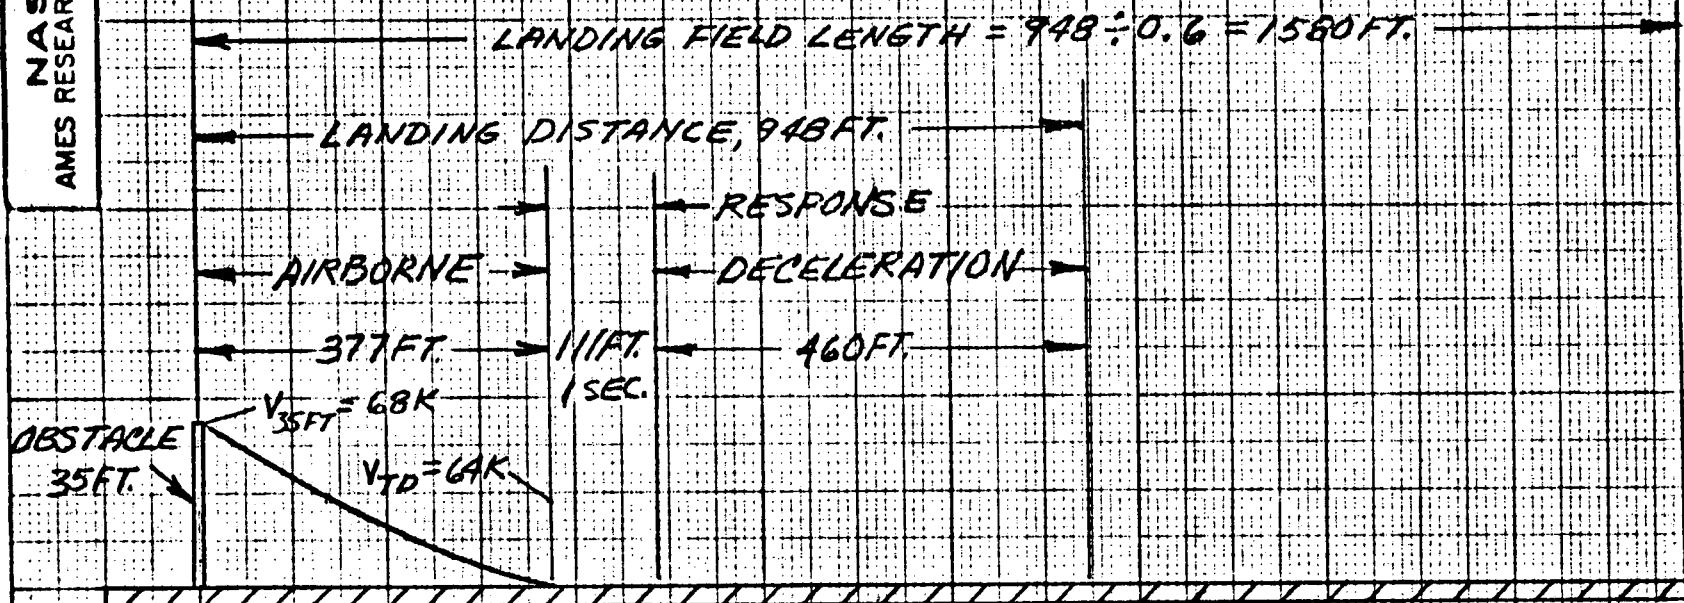 NAS
AMES RESEAR
LANDING FIELD LENGTH = 948 ÷ 0.6 = 1580 FT.
LANDING DISTANCE, 948 FT.
RESPONSE
AIRBORNE
DECELERATION
377 FT.
111 FT.
460 FT.
1 SEC.
V35FT = 68K
OBSTACLE
35 FT.
VTD = 64K